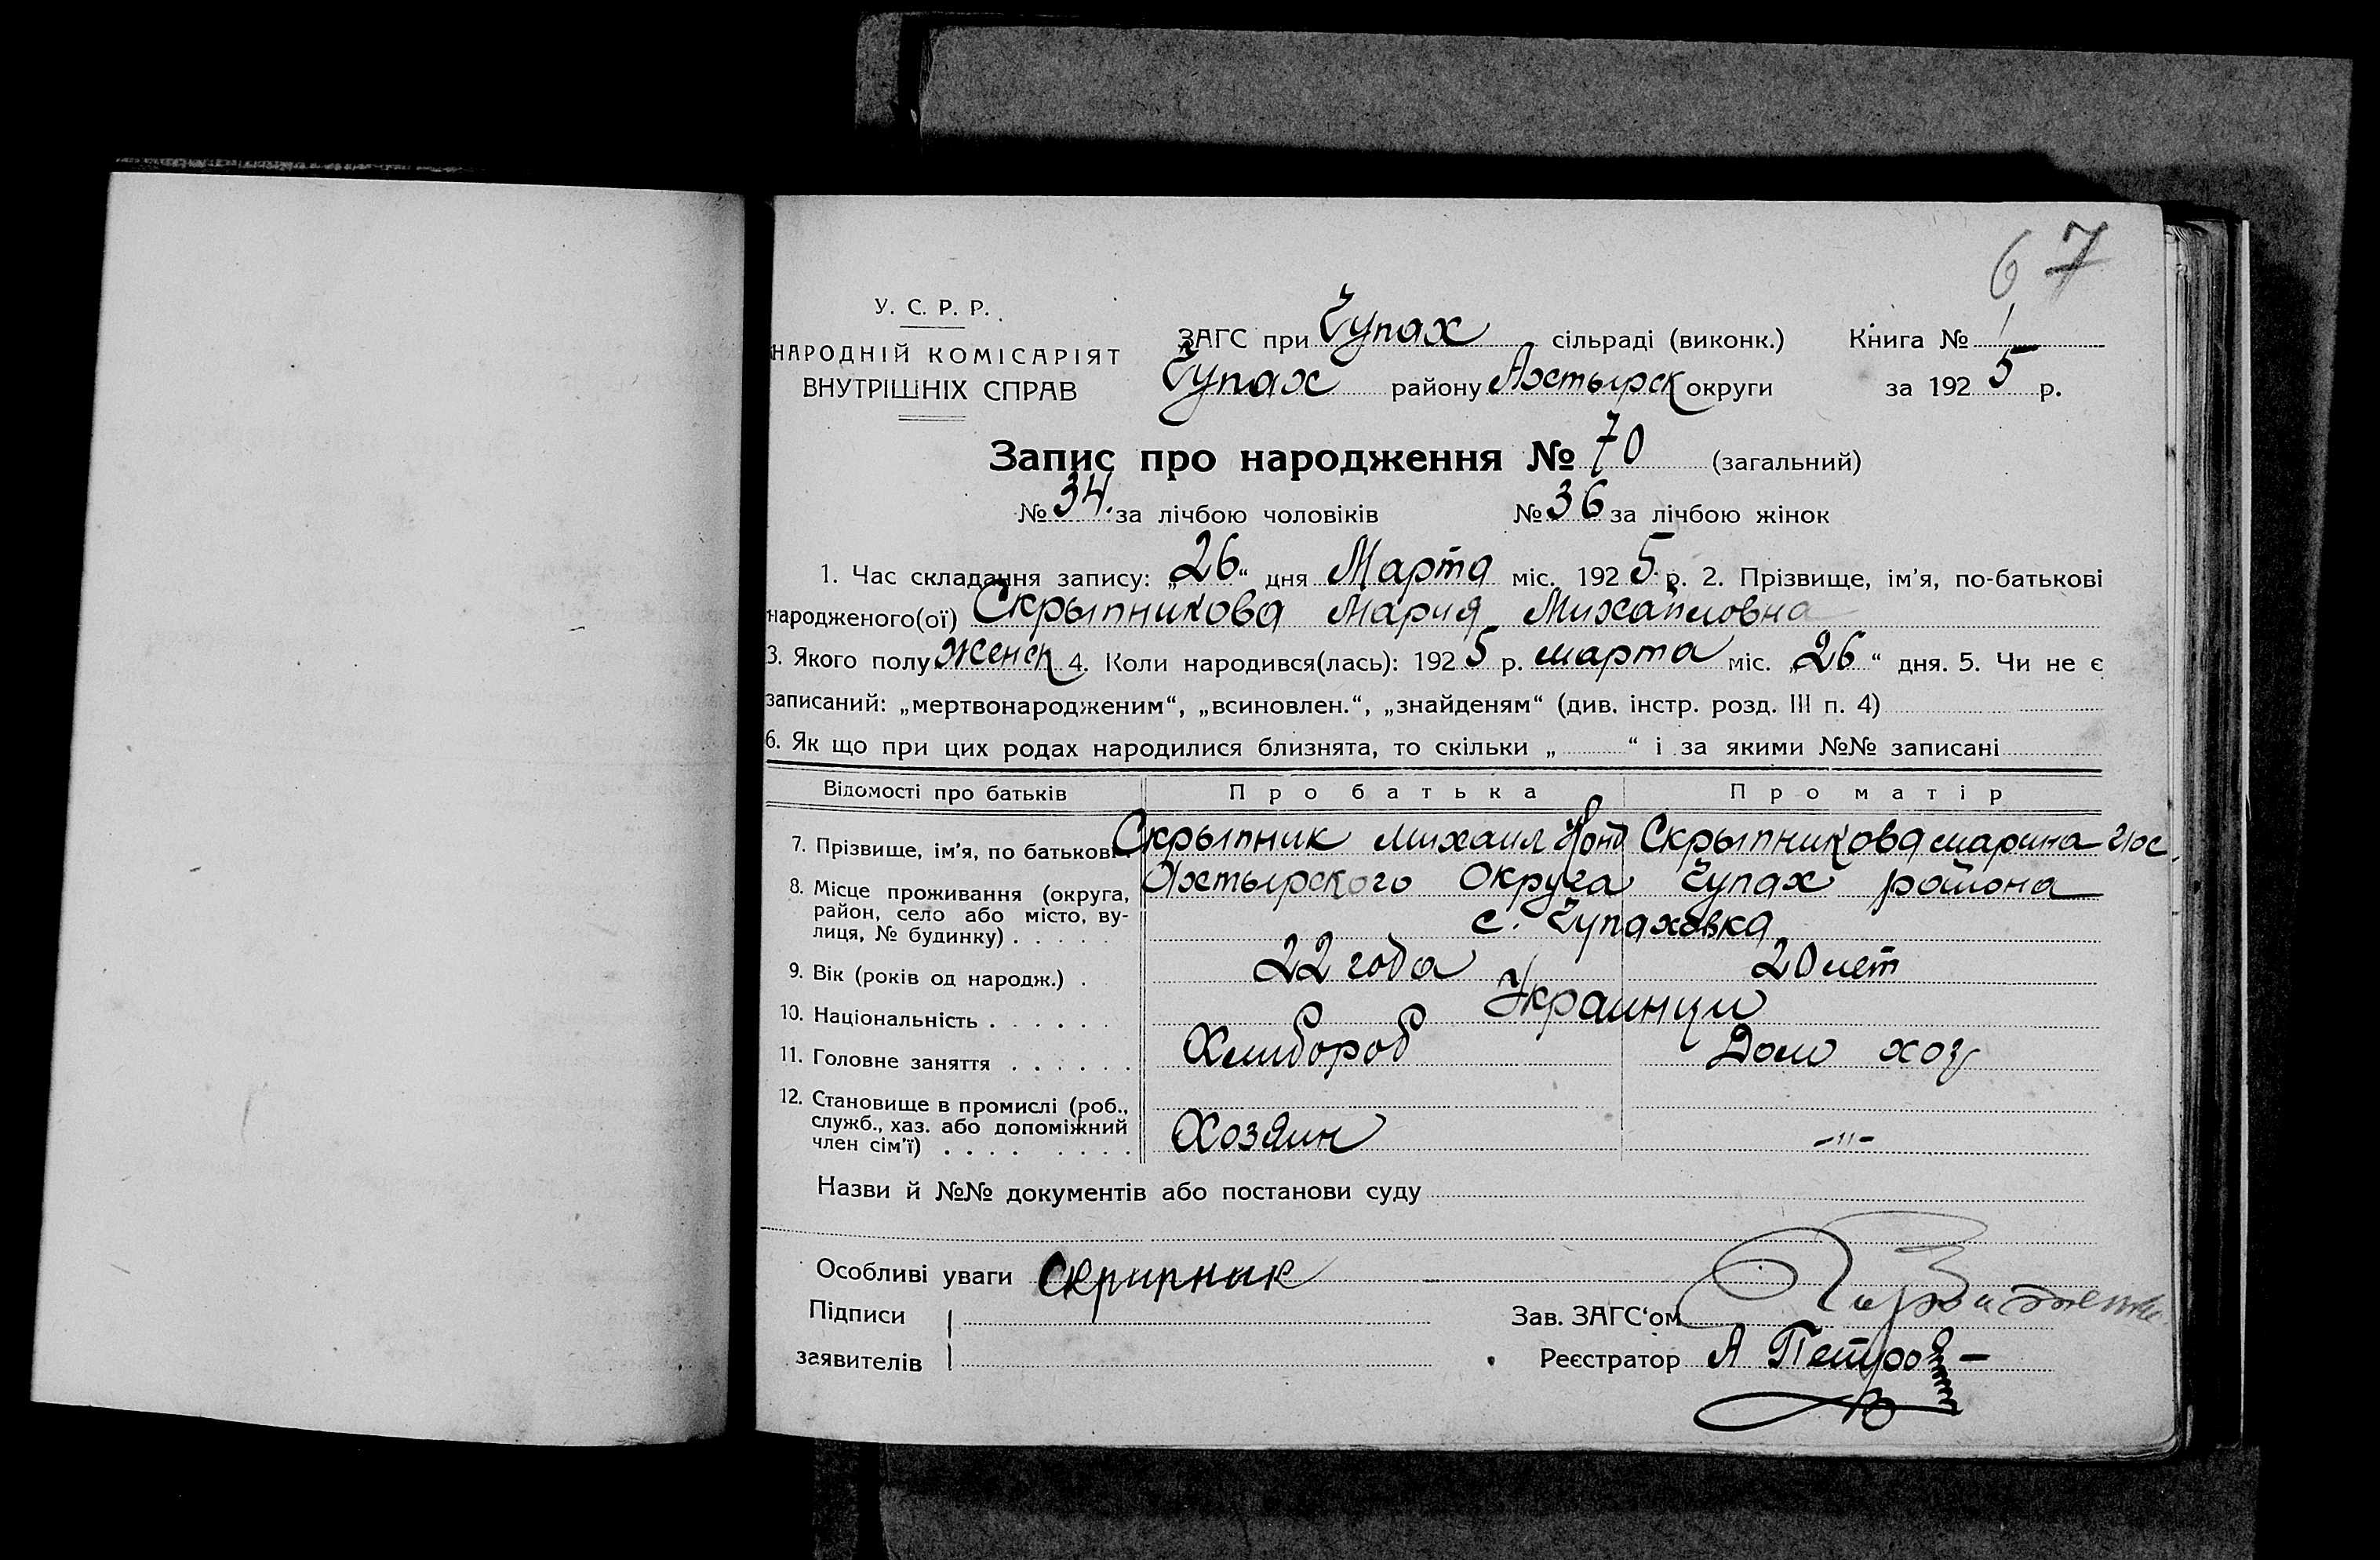 67
У. С. Р. Р.
НАРОДНІЙ КОМІСАРІЯТ
ВНУТРІШНІХ СПРАВ
ЗАГС при Чупах сільраді (виконк.) Книга № 1
Чупах району Ахтырск округи за 1925 р.
Запис про народження № 70 (загальний)
№ 34. за лічбою чоловіків № 36 за лічбою жінок
1. Час складання запису: „26“ дня Марта міс. 1925 р. 2. Прізвище, ім’я, по-батькові
народженого(ої) Скрыпникова Мария Михайловна
3. Якого полу женск 4. Коли народився(лась): 1925 р. марта міс. „26“ дня. 5. Чи не є
записаний: „мертвонародженим“, „всиновлен.“, „знайденям“ (див. інстр. розд. III п. 4)
6. Як що при цих родах народилися близнята, то скільки „ “ і за якими №№ записані
Відомості про батьків Про батька Про матір
7. Прізвище, ім’я, по батькові. Скрыпник Михаил Скрыпникова Марина
8. Місце проживання (округа, район, село або місто, ву-
лиця, № будинку) . . . . . Ахтырского Округа Чупах района
с. Чупаховка
9. Вік (років од народж.) . 22 года 20 лет
10. Національність . . . . . . Украинци
11. Головне заняття . . . . . . Хлибороб Дом хоз
12. Становище в промислі (роб.,
служб., хаз. або допоміжний
член сім’ї) . . . . . . . . Хозяин -"-
Назви й №№ документів або постанови суду
Особливі уваги Скрирник
Підписи
заявителів
Зав. ЗАГС‘ом
Реєстратор А Петров